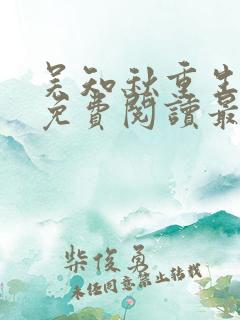 吴知秋重生
免費閱讀最
柴俊勇
未经同意禁止转载